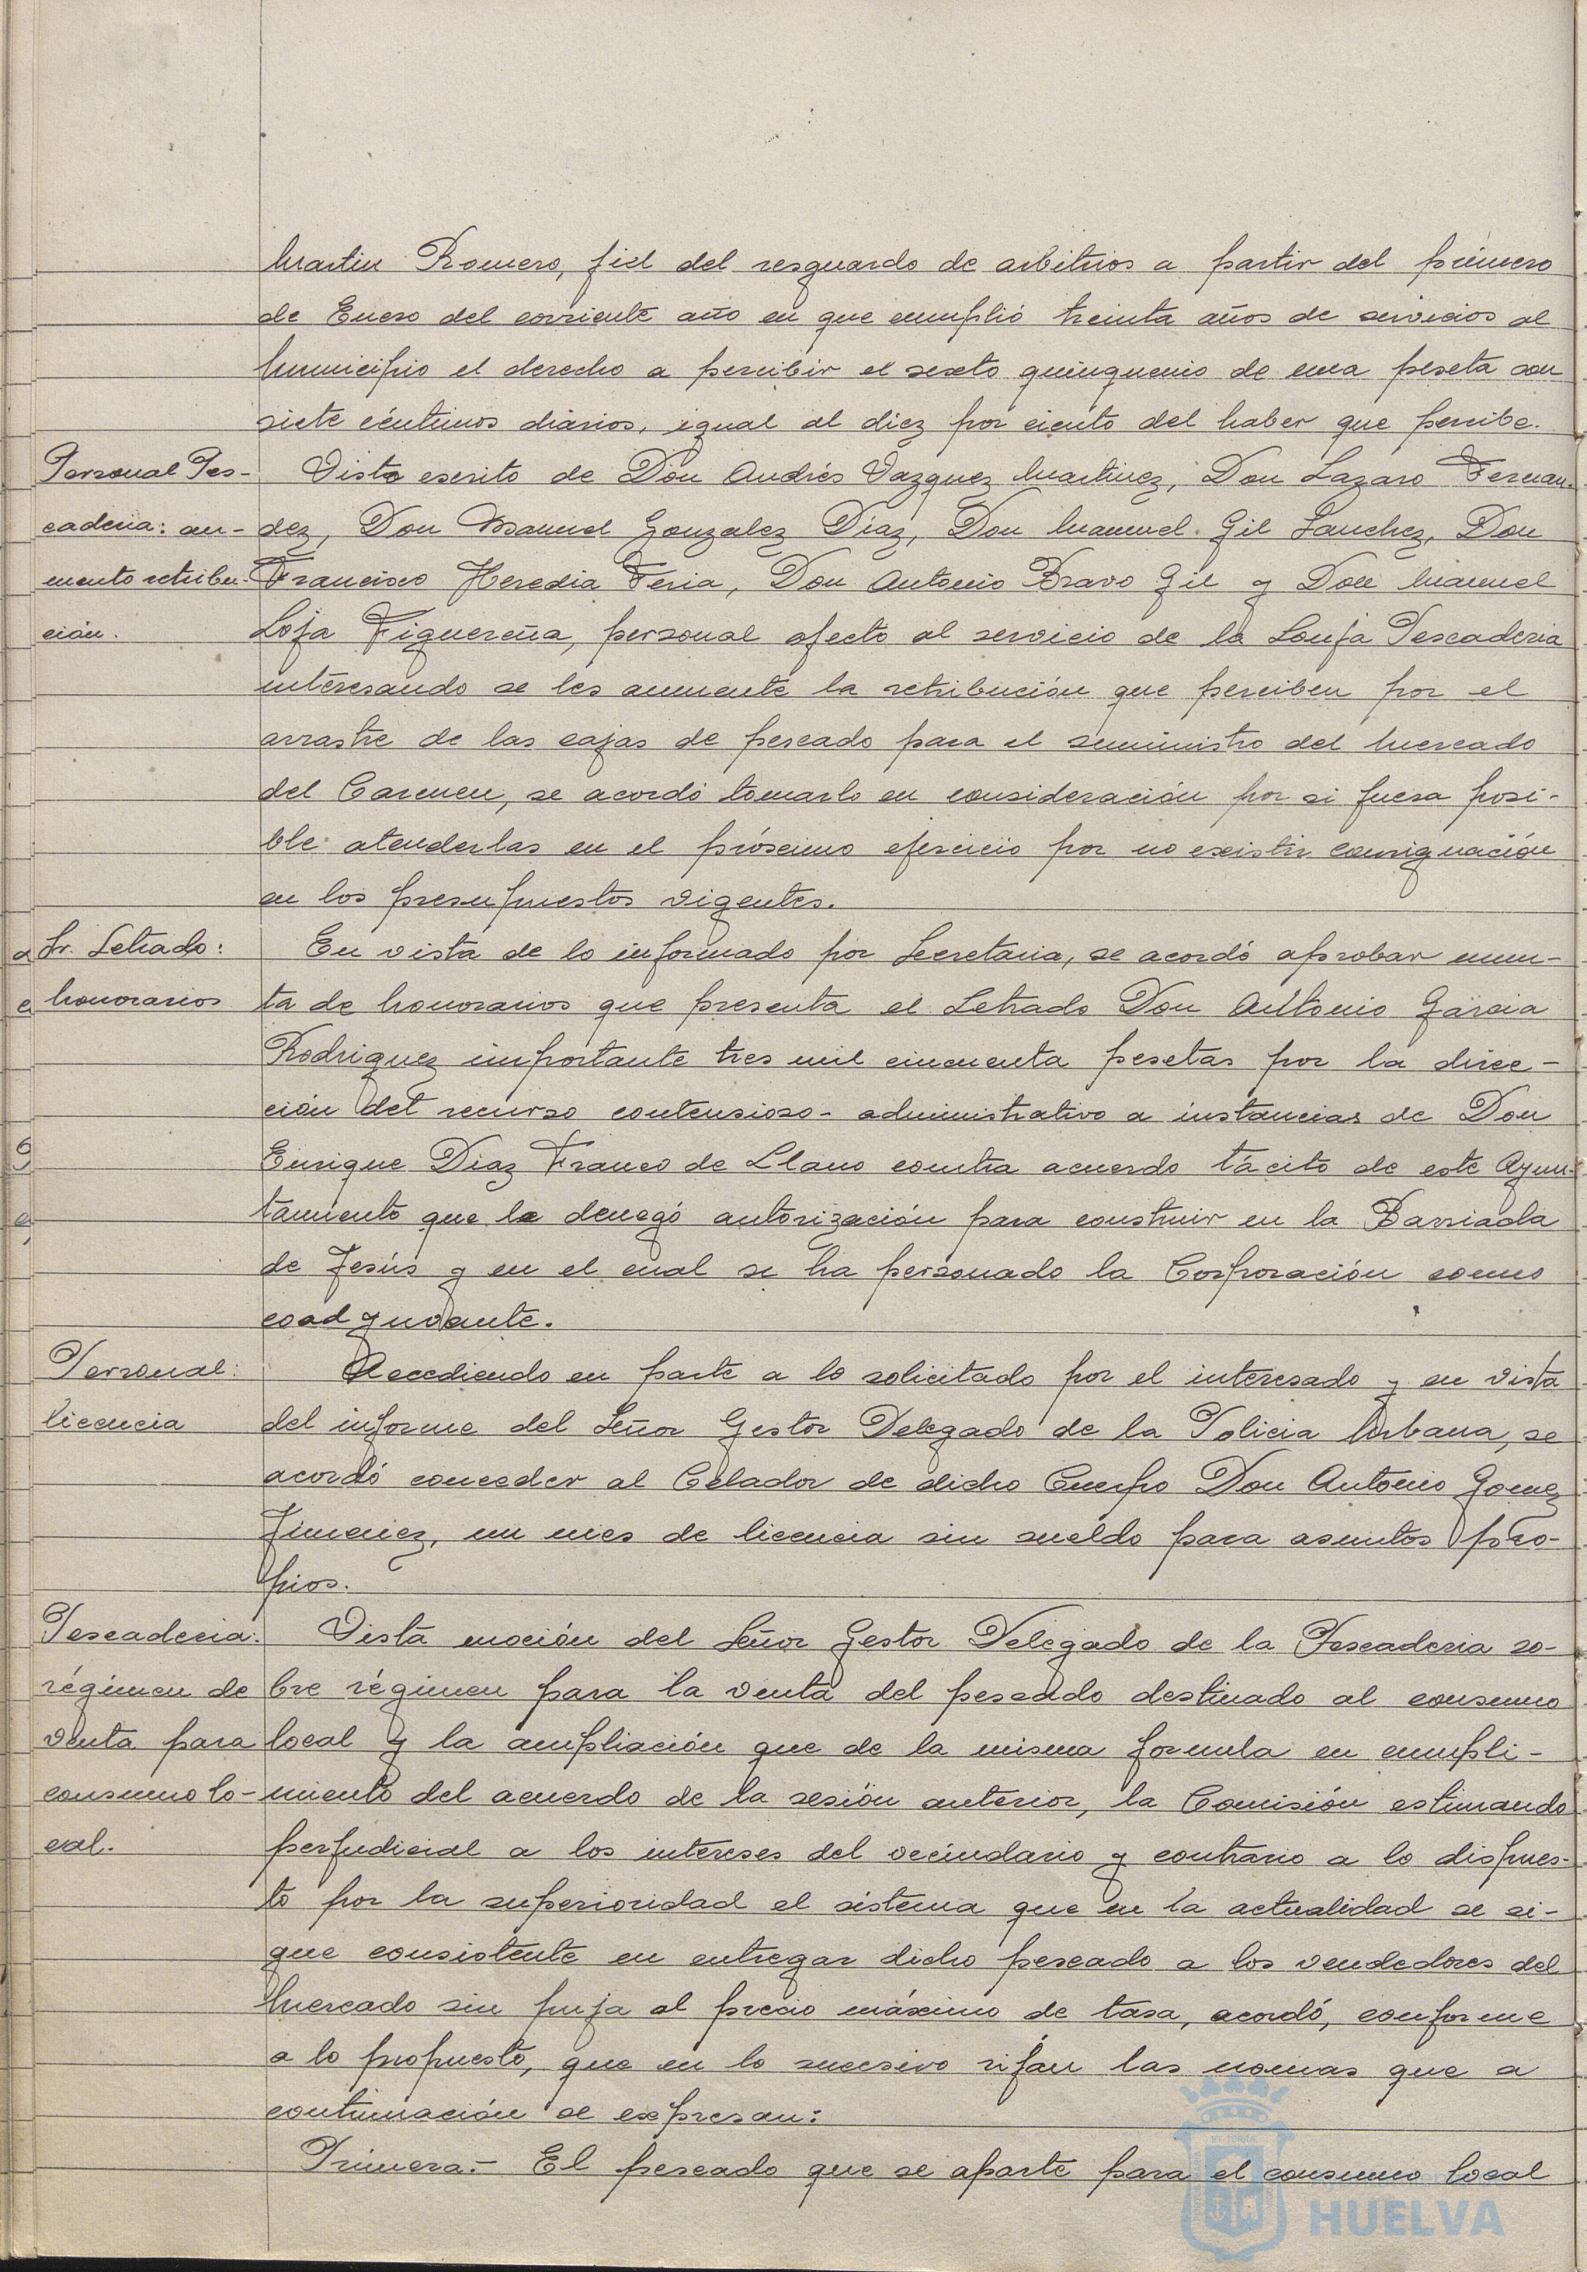 Martin Romero, fiel del resguardo de arbitrios a partir del primero
de Enero del corriente año en que cumplió treinta años de servicios al
Municipio el derecho a percibir el sexto quinquenio de una peseta con
siete céntimos diarios, igual al diez por ciento del haber que percibe.
Personal Pes-
caderia: au-
mento retribu-
ción.
Visto escrito de Don Andrés Vazquez Martinez, Don Lazaro Fernan-
dez, Don Manuel Gonzalez Diaz, Don Manuel Gil Sanchez, Don
Francisco Heredia Feria, Don Antonio Bravo Gil y Don Manuel
Loja Figuereña, personal afecto al servicio de la Lonja Pescaderia
interesando se les aumente la retribución que perciben por el
arrastre de las cajas de pescado para el suministro del Mercado
del Carmen, se acordó tomarlo en consideración por si fuera posi-
ble atenderlas en el próximo ejercicio por no existir consignación
en los presupuestos vigentes.
Sr. Letrado:
honorarios
En vista de lo informado por Secretaria, se acordó aprobar minu-
ta de honorarios que presenta el Letrado Don Antonio Garcia
Rodriguez importante tres mil cincuenta pesetas por la direc-
ción del recurso contensioso-administrativo a instancias de Don
Enrique Diaz Franco de Llano contra acuerdo tácito de este Ayun-
tamiento que le denegó autorización para construir en la Barriada
de Jesús y en el cual se ha personado la Corporación como
coadyuvante.
Personal:
licencia
Accediendo en parte a lo solicitado por el interesado y en vista
del informe del Señor Gestor Delegado de la Policia Urbana, se
acordó conceder al Celador de dicho Cuerpo Don Antonio Gomez
Jimenez, un mes de licencia sin sueldo para asuntos pro-
pios.
Pescaderia:
régimen de
venta para
consumo lo-
cal.
Vista moción del Señor Gestor Delegado de la Pescaderia so-
bre régimen para la venta del pescado destinado al consumo
local y la ampliación que de la misma formula en cumpli-
miento del acuerdo de la sesión anterior, la Comisión estimando
perjudicial a los intereses del vecindario y contrario a lo dispues-
to por la superioridad el sistema que en la actualidad se si-
gue consistente en entregar dicho pescado a los vendedores del
Mercado sin puja al precio máximo de tasa, acordó, conforme
a lo propuesto, que en lo sucesivo rijan las normas que a
continuación se expresan:
Primera.- El pescado que se aparte para el consumo local
HUELVA